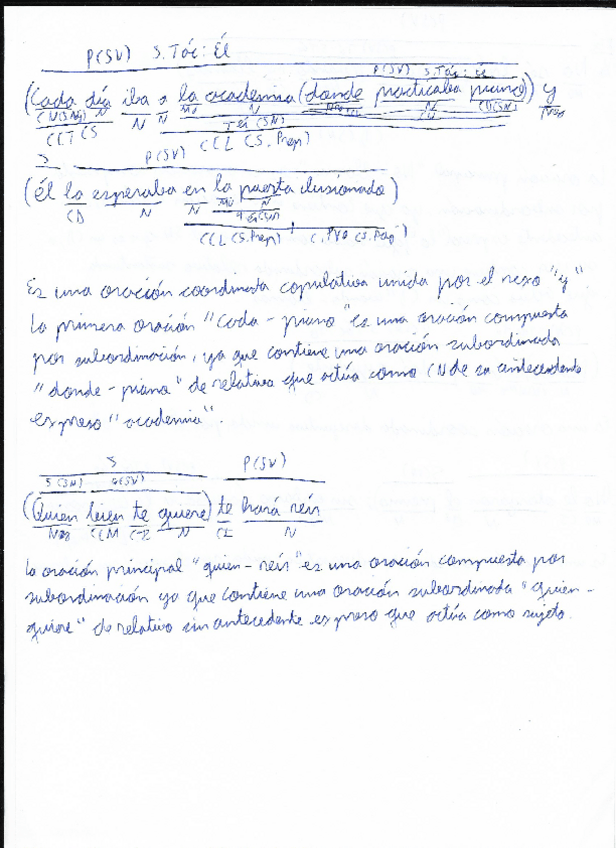 P(SV) S. Tác: Él
P(SV) S. Tác: Él
(Cada día iba a la academia (donde practicaba piano)) y
N N N N
CCT CS
T éi (SN)
CCL (S. Prep)
S P(SV)
(él lo esperaba en la puerta ilusionado)
CD N N
CCL (S.Prep) C. Pvo
Es una oración coordinada copulativa unida por el nexo "y"
La primera oración "cada - piano" es una oración compuesta
por subordinación, ya que contiene una oración subordinada
"donde - piano" de relativo que actúa como CN de su antecedente
expreso "academia".
S P(SV)
S(SN) P(SV)
(Quien bien te quiere) te hará reír
CCM N N
La oración principal "quien - reír" es una oración compuesta por
subordinación ya que contiene una oración subordinada "quien -
quiere" de relativo sin antecedente expreso que actúa como sujeto.